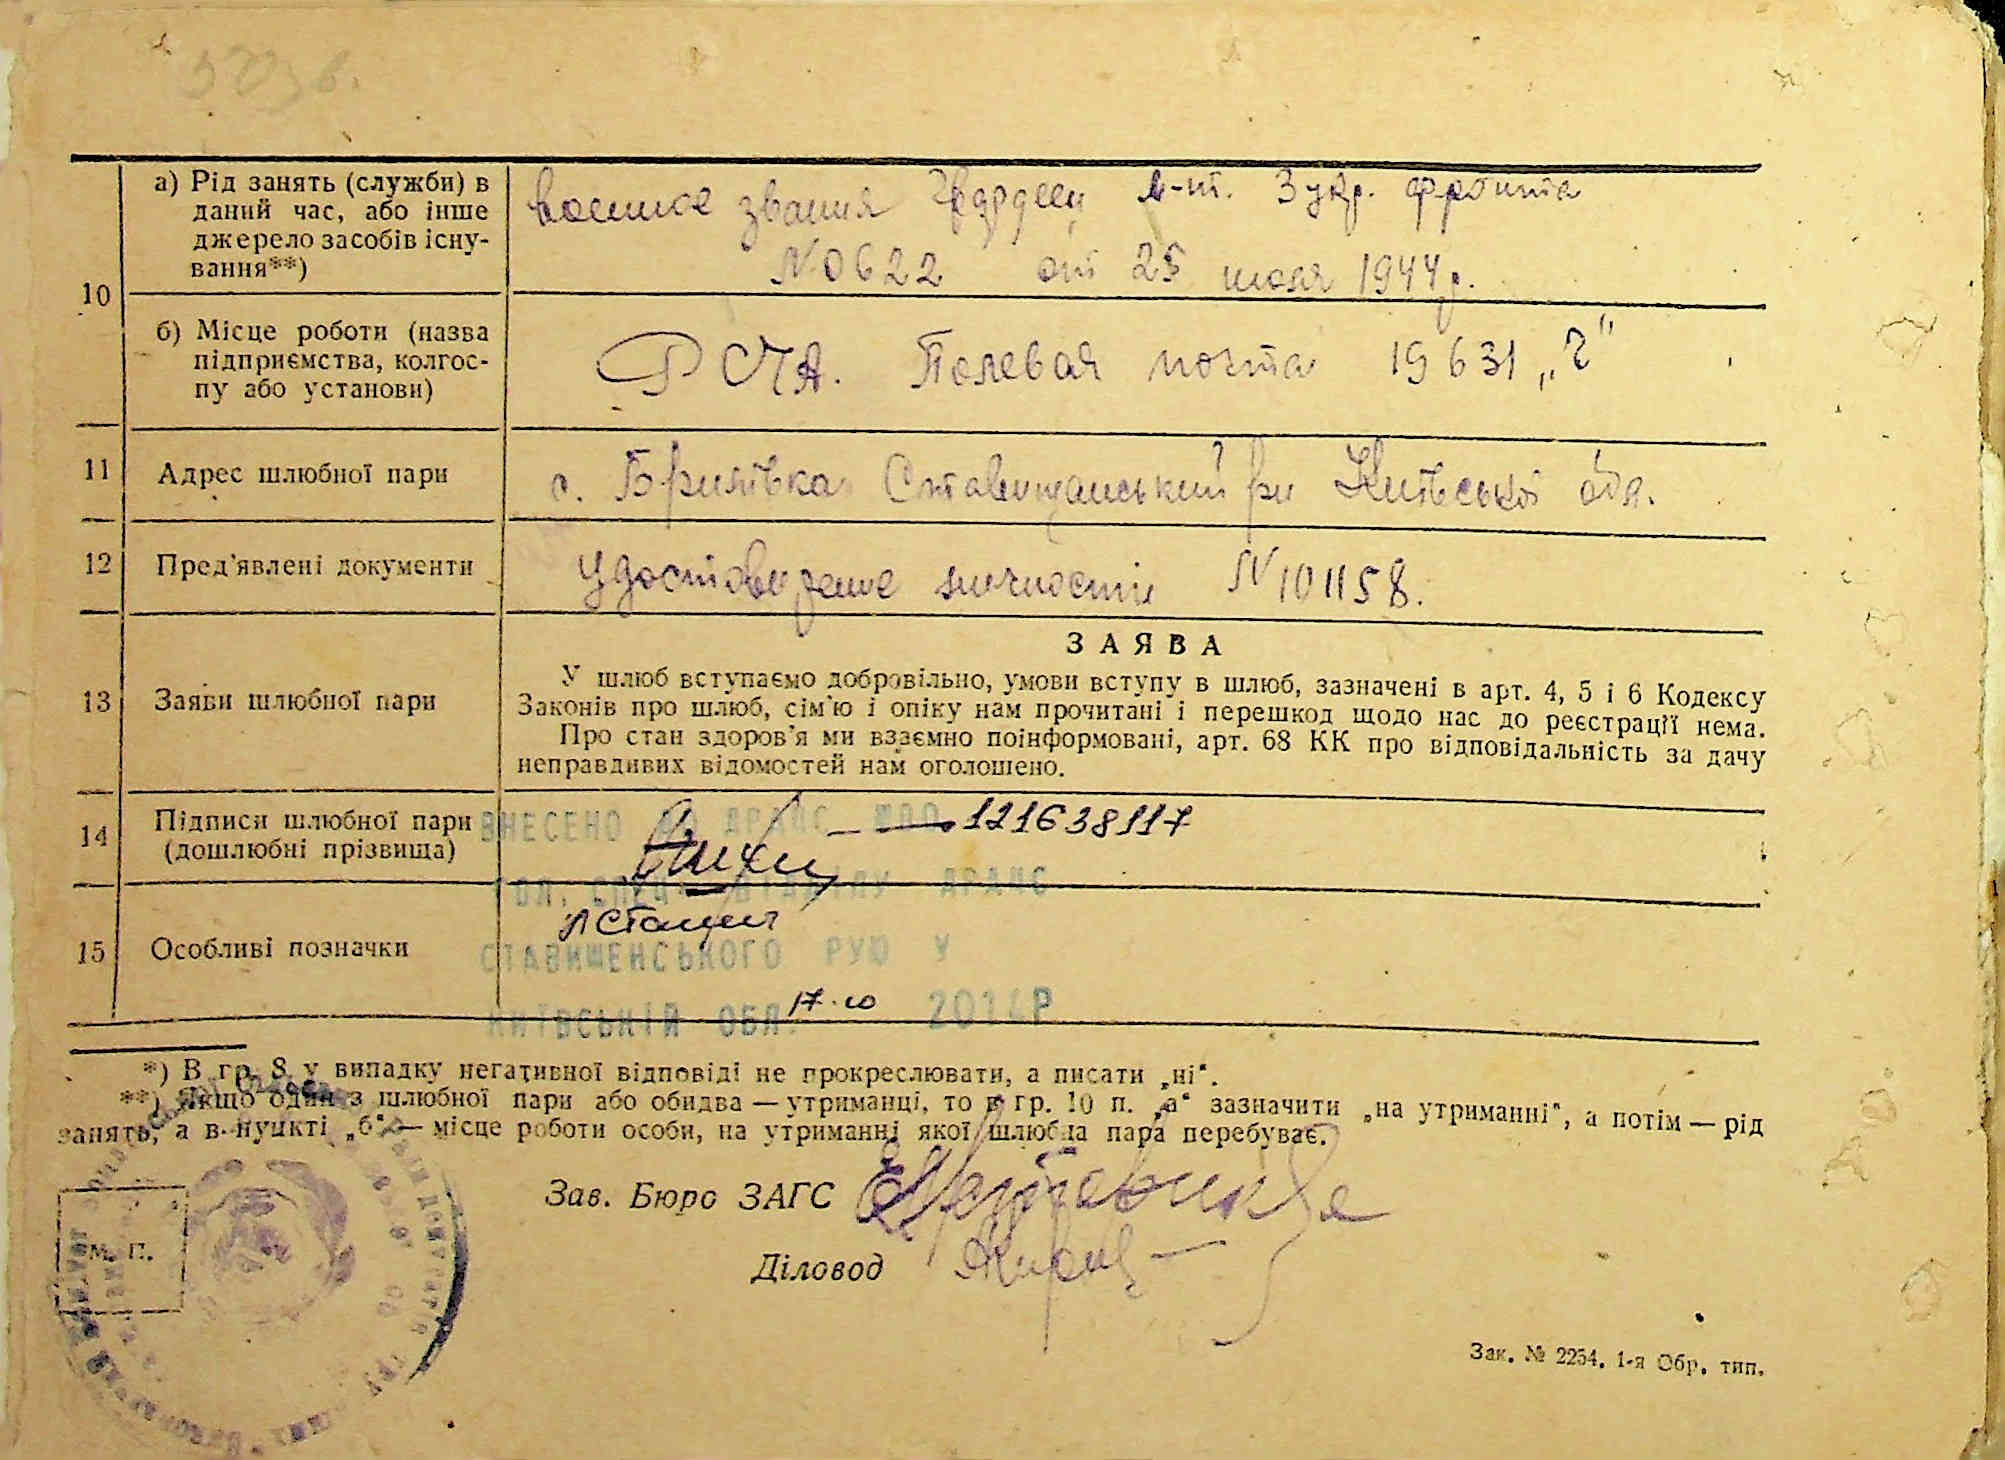 10
а) Рід занять (служби) в
даний час, або інше
джерело засобів існу-
вання**)
военное звания Гвардеец л-т. 3 укр. фронта
№ 0622 от 25 июля 1944 г.
б) Місце роботи (назва
підприємства, колгос-
пу або установи)
Полевая почта 19631 „г"
11
Адрес шлюбної пари
с. Брилівка Ставищанський р-н Київської обл.
12
Пред'явлені документи
удостоверение личности № 101158.
13
Заяви шлюбної пари
ЗАЯВА
У шлюб вступаємо добровільно, умови вступу в шлюб, зазначені в арт. 4, 5 і 6 Кодексу
Законів про шлюб, сім'ю і опіку нам прочитані і перешкод щодо нас до реєстрації нема.
Про стан здоров'я ми взаємно поінформовані, арт. 68 КК про відповідальність за дачу
неправдивих відомостей нам оголошено.
14
Підписи шлюбної пари
(дошлюбні прізвища)
ВНЕСЕНО ДО ДРАЦС 121638117
ГОЛ. СПЕЦ. ВІДДІЛУ ДРАЦС
15
Особливі позначки
СТАВИЩЕНСЬКОГО РУЮ У
КИЇВСЬКІЙ ОБЛ. 17.10 2014Р
*) В гр. 8 у випадку негативної відповіді не прокреслювати, а писати „ні".
**) Якщо один з шлюбної пари або обидва — утриманці, то в гр. 10 п. „а" зазначити „на утриманні", а потім — рід
занять, а в пункті „б" — місце роботи особи, на утриманні якої шлюбна пара перебуває.
Зав. Бюро ЗАГС
М. П.
Діловод
Зак. № 2254. 1-я Обр. тип.